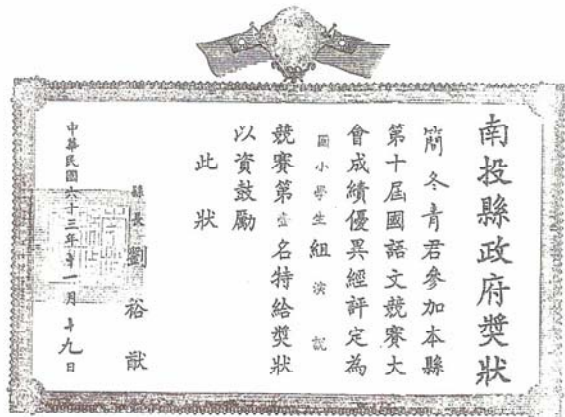 南投縣政府獎狀
簡冬青君參加本縣
第十屆國語文競賽大
會成績優異經評定為
國小學生組演說
競賽第壹名特給獎狀
以資鼓勵
此狀
縣長劉裕猷
中華民國六十三年十一月十九日